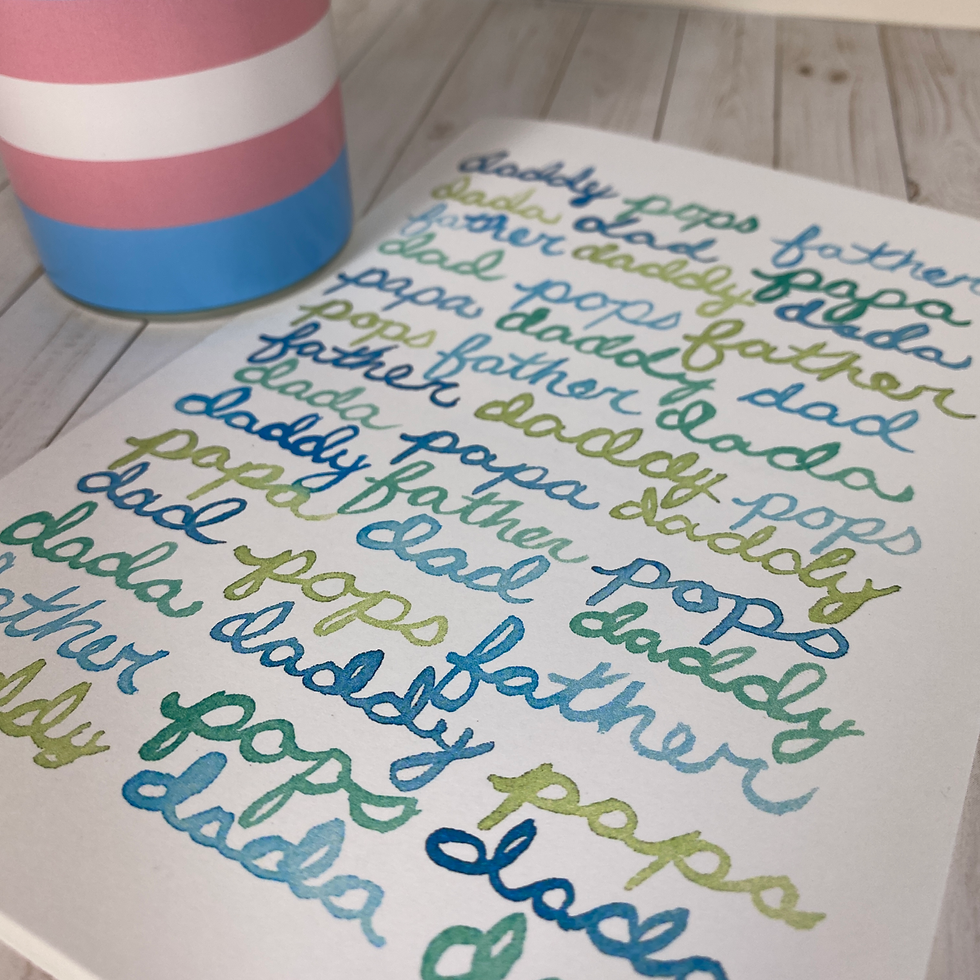 daddy pops father
dada dad papa
father daddy dada
dad pops father
papa daddy dad
pops father dada
father daddy pops
dada papa daddy
daddy father pops
papa dad daddy
dad pops father
dada daddy papa
father pops dada
ddy dada d